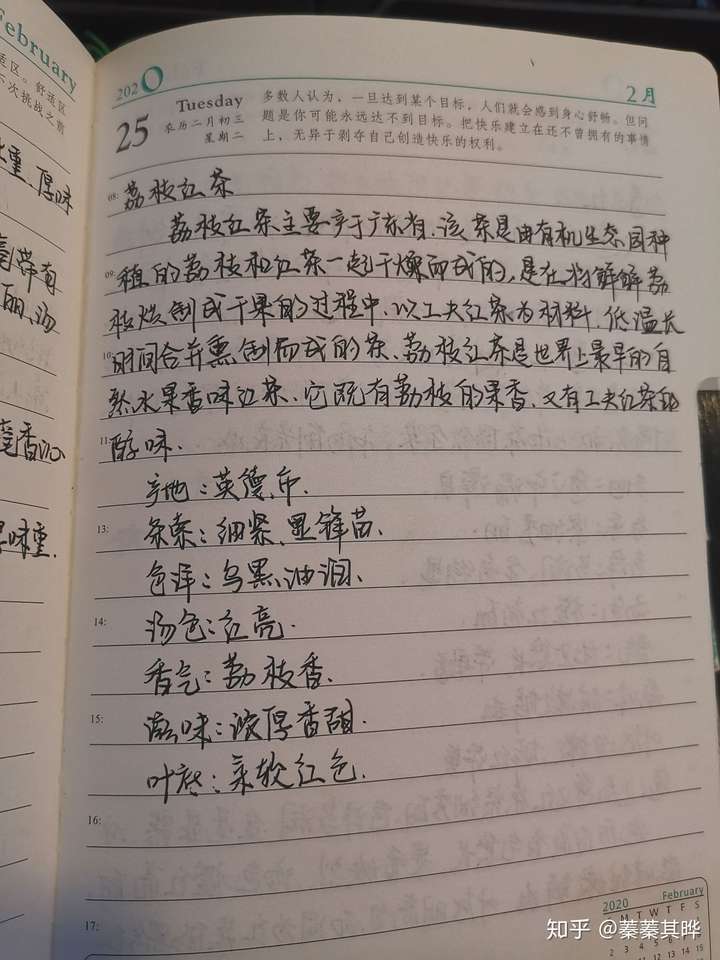 February
适区。舒适区
不次挑战之前
重、厚味
2020
2月
25
Tuesday
农历二月初三
星期二
多数人认为，一旦达到某个目标，人们就会感到身心舒畅。但问
题是你可能永远达不到目标。把快乐建立在还不曾拥有的事情
上，无异于剥夺自己创造快乐的权利。
08:
荔枝红茶
荔枝红茶主要产于广东省.该茶是由有机生态园种
09:
植的荔枝和红茶一起干燥而成的,是在将鲜鲜荔
枝烘制成干果的过程中、以工夫红茶为材料.低温长
10:
时间合并熏制而成的茶、荔枝红茶是世界上最早的自
然水果香味红茶.它既有荔枝的果香.又有工夫红茶的
11:
醇味.
产地:英德市.
13:
条索:细紧、显锋苗.
色泽:乌黑油润.
14:
汤色:红亮.
香气:荔枝香.
15:
滋味:浓厚香甜.
叶底:柔软红色.
16:
17:
2020 February
M T W T F S
知乎 @蓁蓁其晔